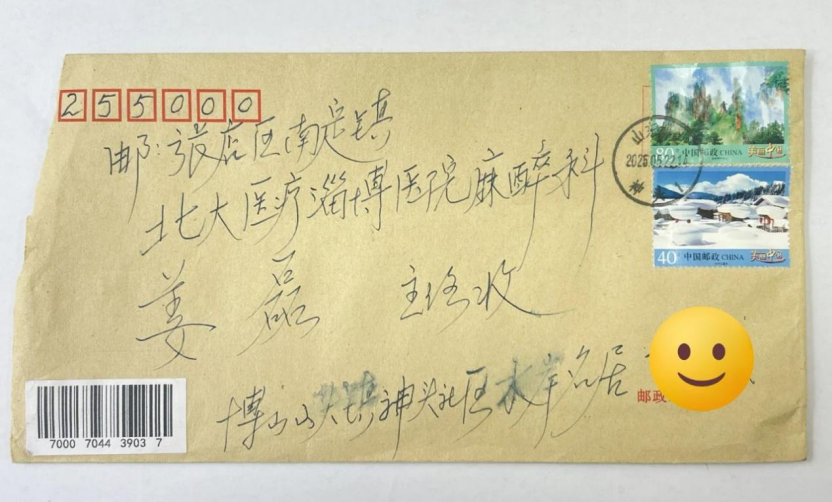 255000
邮:张店区南定镇
北大医疗淄博医院麻醉科
姜磊 主任收
博山山头镇神头社区水岸名居
80 中国邮政 CHINA 美丽中国
40 中国邮政 CHINA 美丽中国
山东
2025.05.22.1
邮政
7000 7044 3903 7